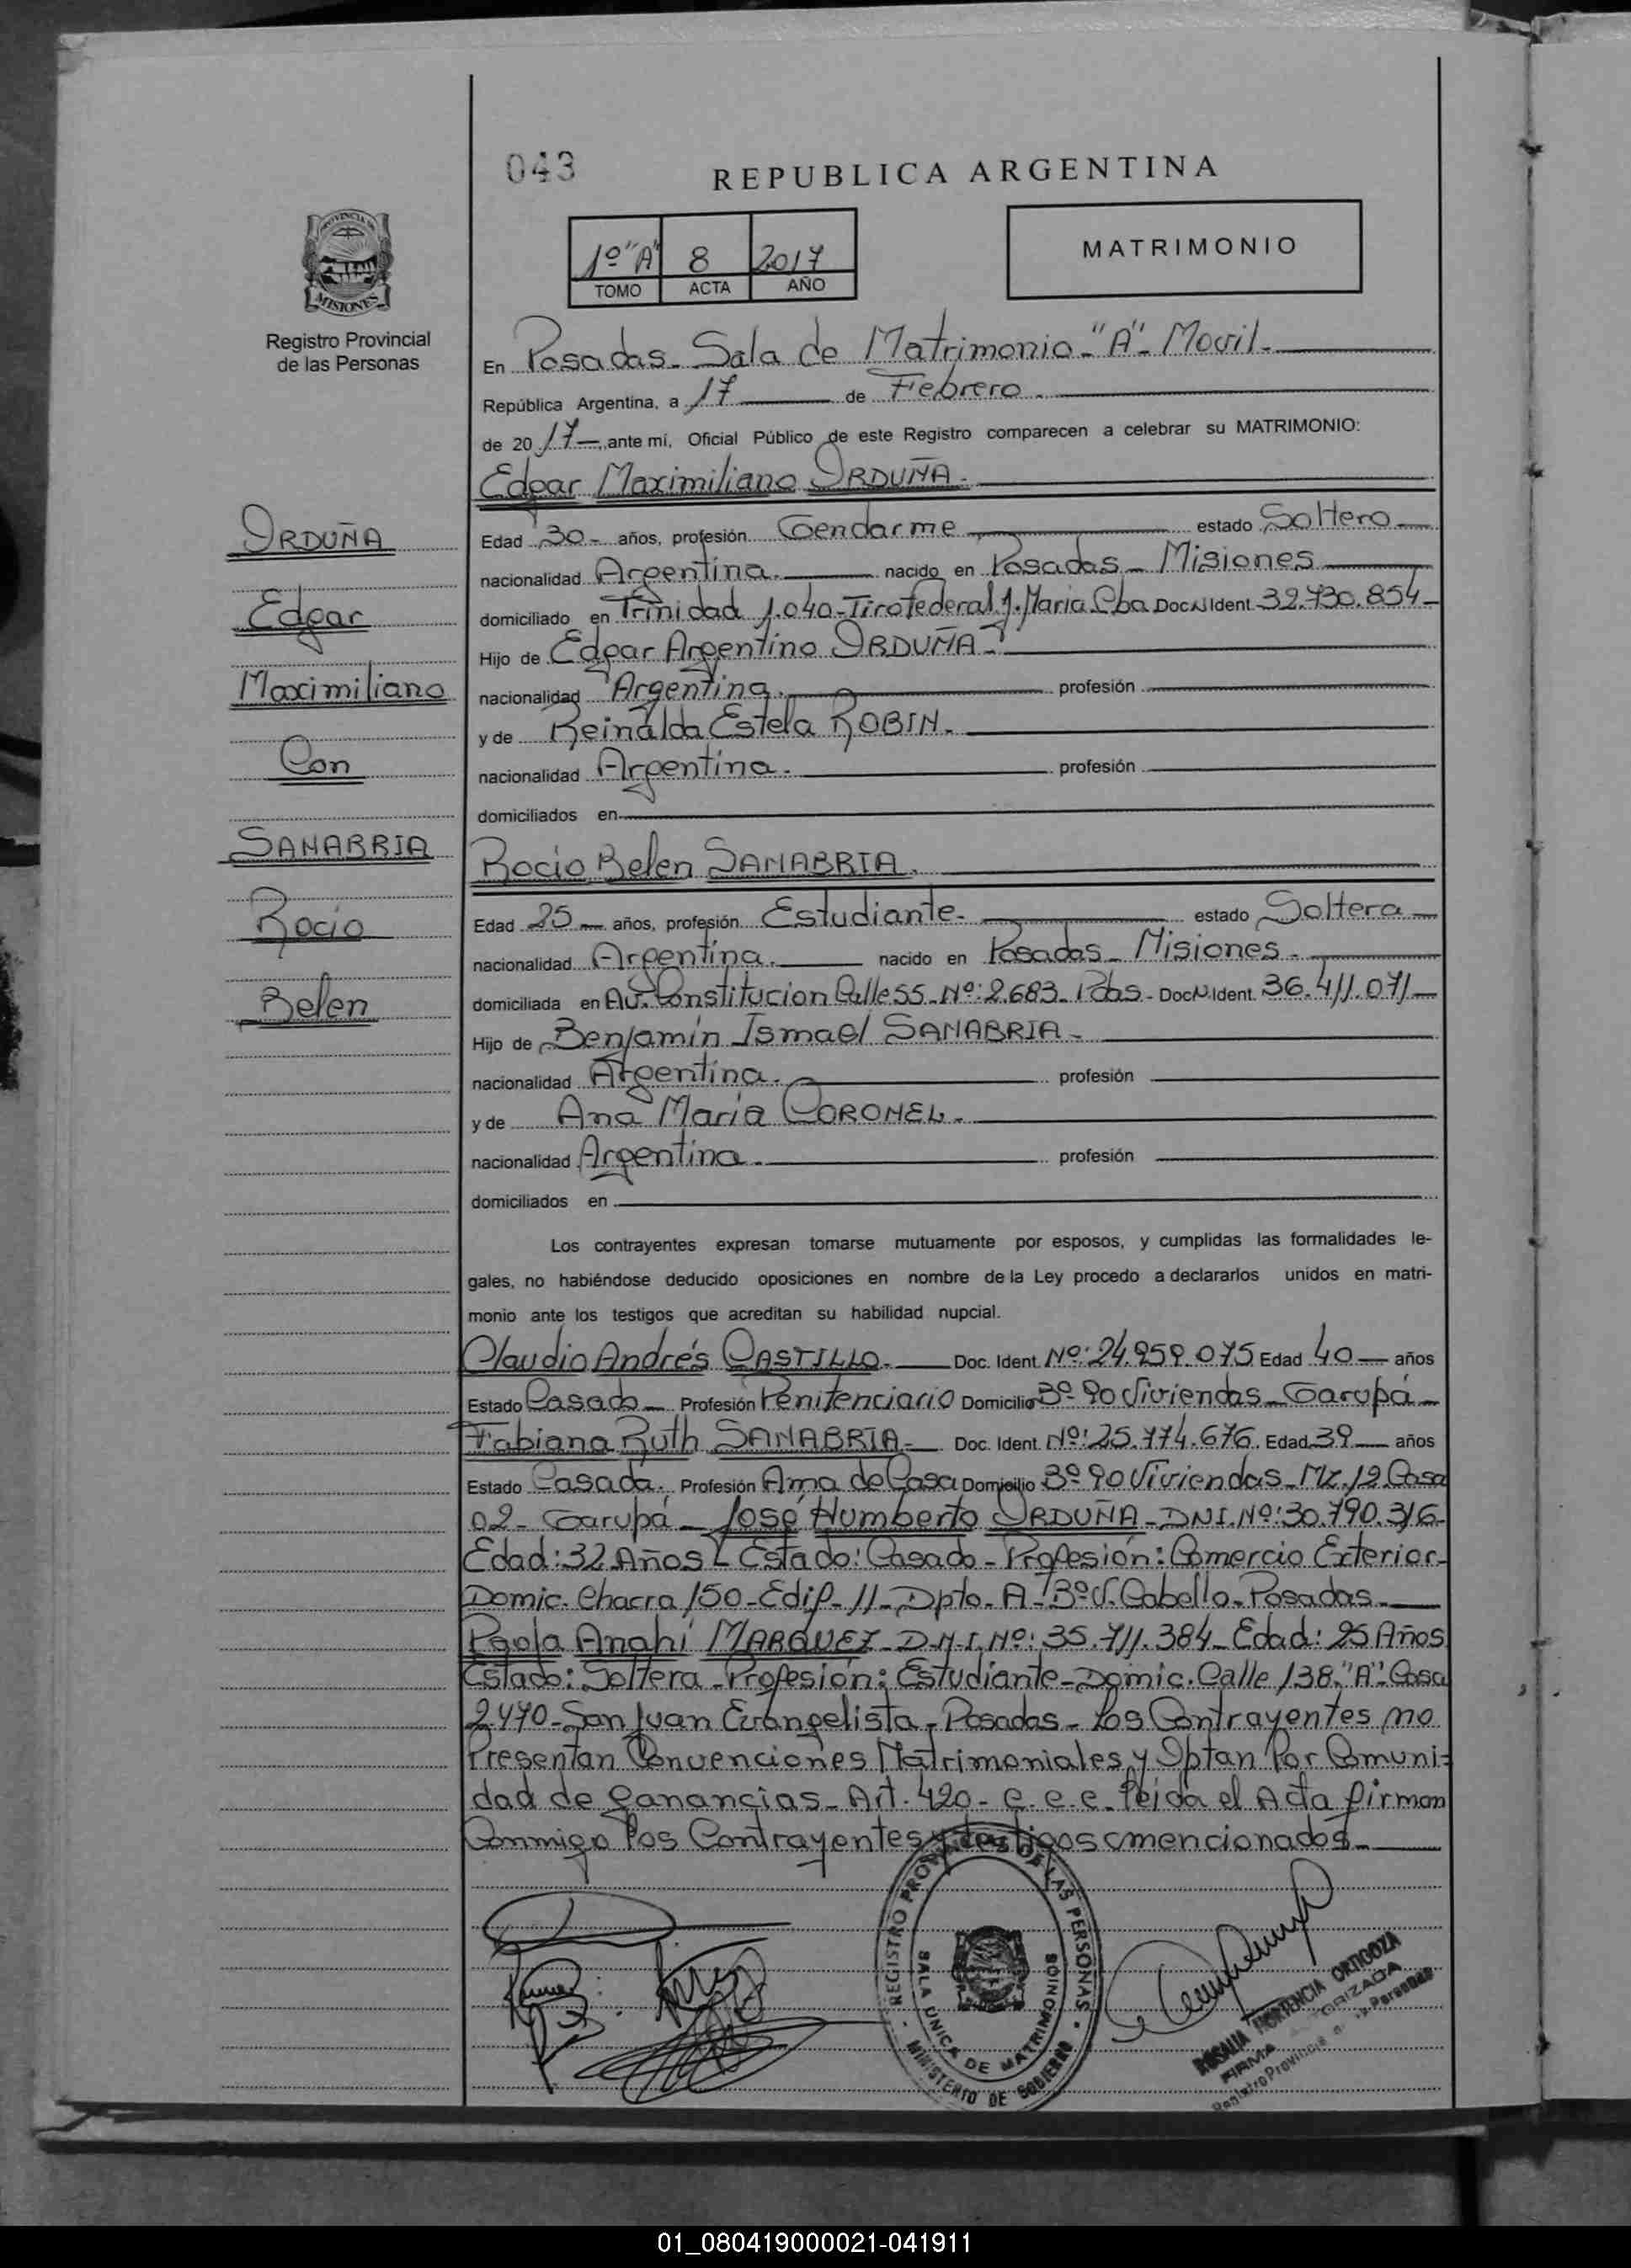 043
REPUBLICA ARGENTINA
PROVINCIA DE
MISIONES
Registro Provincial
de las Personas
1º "A" 8 2017
TOMO ACTA AÑO
MATRIMONIO
En Posadas - Sala de Matrimonio - "A" - Movil -
República Argentina, a 17 de Febrero -
de 20 17 - ,ante mí, Oficial Público de este Registro comparecen a celebrar su MATRIMONIO:
Edgar Maximiliano ORDUÑA -
ORDUÑA
Edgar
Maximiliano
Con
SANABRIA
Rocio
Belen
Edad 30 - años, profesión Gendarme estado Soltero -
nacionalidad Argentina. nacido en Posadas - Misiones
domiciliado en Trinidad 1.040 - Tiro federal J. Maria Cba Doc N Ident 32.730.854 -
Hijo de Edgar Argentino ORDUÑA -
nacionalidad Argentina. profesión
y de Reinalda Estela ROBIN.
nacionalidad Argentina. profesión
domiciliados en
Rocio Belen SANABRIA.
Edad 25 - años, profesión Estudiante - estado Soltera -
nacionalidad Argentina. nacido en Posadas - Misiones -
domiciliada en Av. Constitucion Calle 55 - Nº: 2.683 - Pdas - Doc N. Ident. 36.411.071 -
Hijo de Benjamin Ismael SANABRIA -
nacionalidad Argentina. profesión
y de Ana Maria CORONEL -
nacionalidad Argentina - profesión
domiciliados en
Los contrayentes expresan tomarse mutuamente por esposos, y cumplidas las formalidades le-
gales, no habiéndose deducido oposiciones en nombre de la Ley procedo a declararlos unidos en matri-
monio ante los testigos que acreditan su habilidad nupcial.
Claudio Andrés CASTILLO - Doc. Ident. Nº: 24.959.075 Edad 40 - años
Estado Casado - Profesión Penitenciario Domicilio 3º 90 Viviendas - Garupá -
Fabiana Ruth SANABRIA - Doc. Ident. Nº: 25.774.676. Edad 39 - años
Estado Casada. Profesión Ama de Casa Domicilio 3º 90 Viviendas - Mz. 12 Casa
02 - Garupá - José Humberto ORDUÑA - DNI. Nº: 30.790.316 -
Edad: 32 Años - Estado: Casado - Profesión: Comercio Exterior -
Domic. Chacra 150 - Edif - 11 - Dpto - A - Bº V. Cabello - Posadas -
Paola Anahi MARQUEZ - D.N.I. Nº: 35.711.384 - Edad: 25 Años
Estado: Soltera - Profesión: Estudiante - Domic. Calle 138 "A" - Casa
2.470 - San Juan Evangelista - Posadas - Los Contrayentes no
Presentan Convenciones Matrimoniales y Optan Por Comuni-
dad de ganancias - Art. 420 - c.c.c. Leida el Acta firman
Conmigo los Contrayentes y testigos mencionados -
REGISTRO PROVINCIAL DE LAS PERSONAS
SALA UNICA DE MATRIMONIOS
MINISTERIO DE GOBIERNO
ROSALIA HORTENCIA ORTIGOZA
FIRMA AUTORIZADA
Registro Provincial de las Personas
01_080419000021-041911